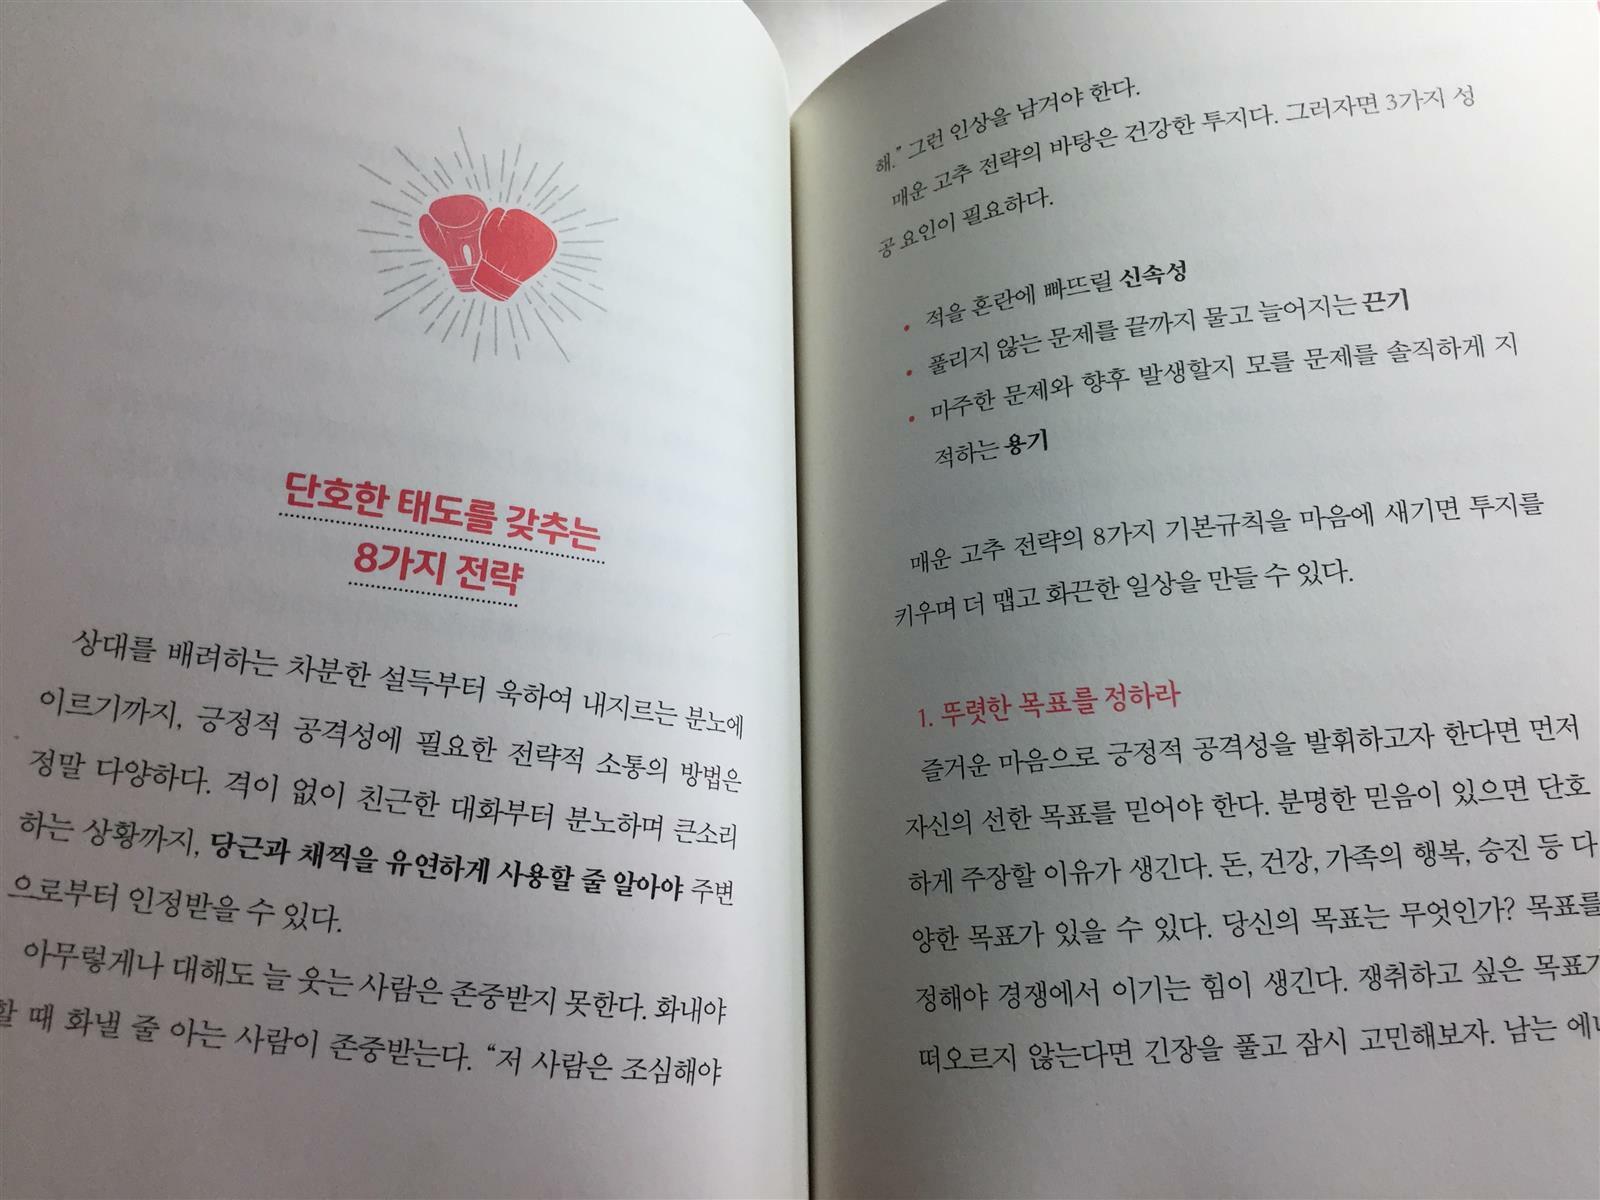 단호한 태도를 갖추는
8가지 전략
상대를 배려하는 차분한 설득부터 욱하여 내지르는 분노에
이르기까지, 긍정적 공격성에 필요한 전략적 소통의 방법은
정말 다양하다. 격이 없이 친근한 대화부터 분노하며 큰소리
하는 상황까지, 당근과 채찍을 유연하게 사용할 줄 알아야 주변
으로부터 인정받을 수 있다.
아무렇게나 대해도 늘 웃는 사람은 존중받지 못한다. 화내야
할 때 화낼 줄 아는 사람이 존중받는다. “저 사람은 조심해야
해.” 그런 인상을 남겨야 한다.
매운 고추 전략의 바탕은 건강한 투지다. 그러자면 3가지 성
공 요인이 필요하다.
• 적을 혼란에 빠뜨릴 신속성
• 풀리지 않는 문제를 끝까지 물고 늘어지는 끈기
• 마주한 문제와 향후 발생할지 모를 문제를 솔직하게 지
적하는 용기
매운 고추 전략의 8가지 기본규칙을 마음에 새기면 투지를
키우며 더 맵고 화끈한 일상을 만들 수 있다.
1. 뚜렷한 목표를 정하라
즐거운 마음으로 긍정적 공격성을 발휘하고자 한다면 먼저
자신의 선한 목표를 믿어야 한다. 분명한 믿음이 있으면 단호
하게 주장할 이유가 생긴다. 돈, 건강, 가족의 행복, 승진 등 다
양한 목표가 있을 수 있다. 당신의 목표는 무엇인가? 목표를
정해야 경쟁에서 이기는 힘이 생긴다. 쟁취하고 싶은 목표가
떠오르지 않는다면 긴장을 풀고 잠시 고민해보자. 남는